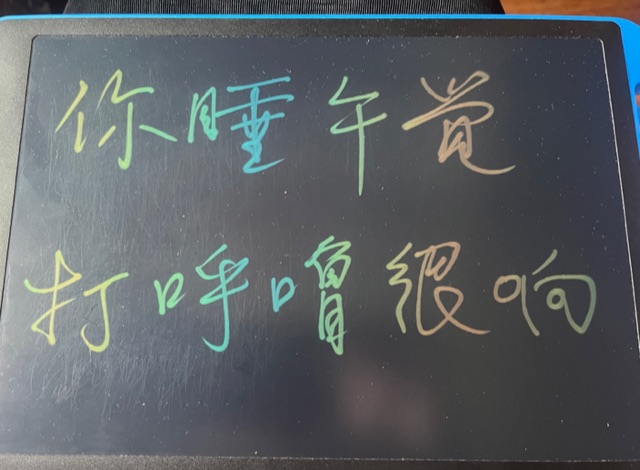 你睡午觉
打呼噜很响